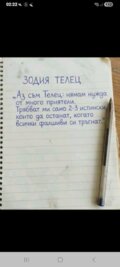 02:22
ЗОДИЯ ТЕЛЕЦ
"Аз съм Телец: нямам нужда
от много приятели.
Трябват ми само 2-3 истински,
които да останат, когато
всички фалшиви си тръгнат."